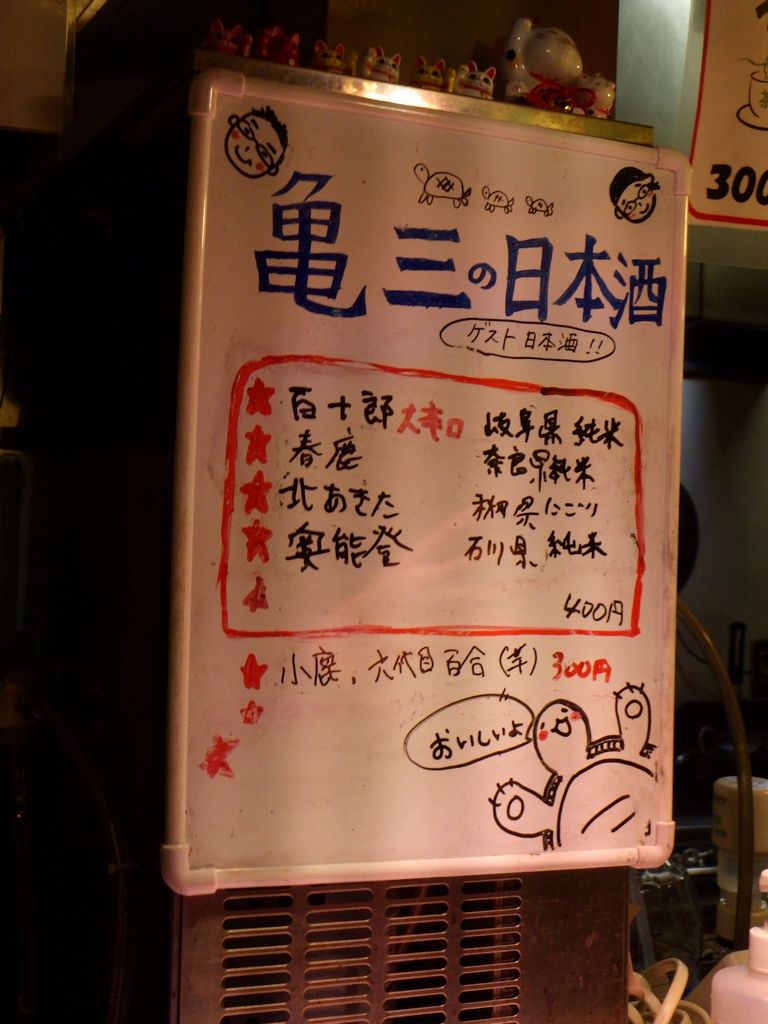 亀三の日本酒
ゲスト日本酒!!
百十郎 大辛口 岐阜県 純米
春鹿 奈良県 純米
北あきた 秋田県 にごり
奥能登 石川県 純米
400円
小鹿, 六代目百合(芋) 300円
おいしいよ
300